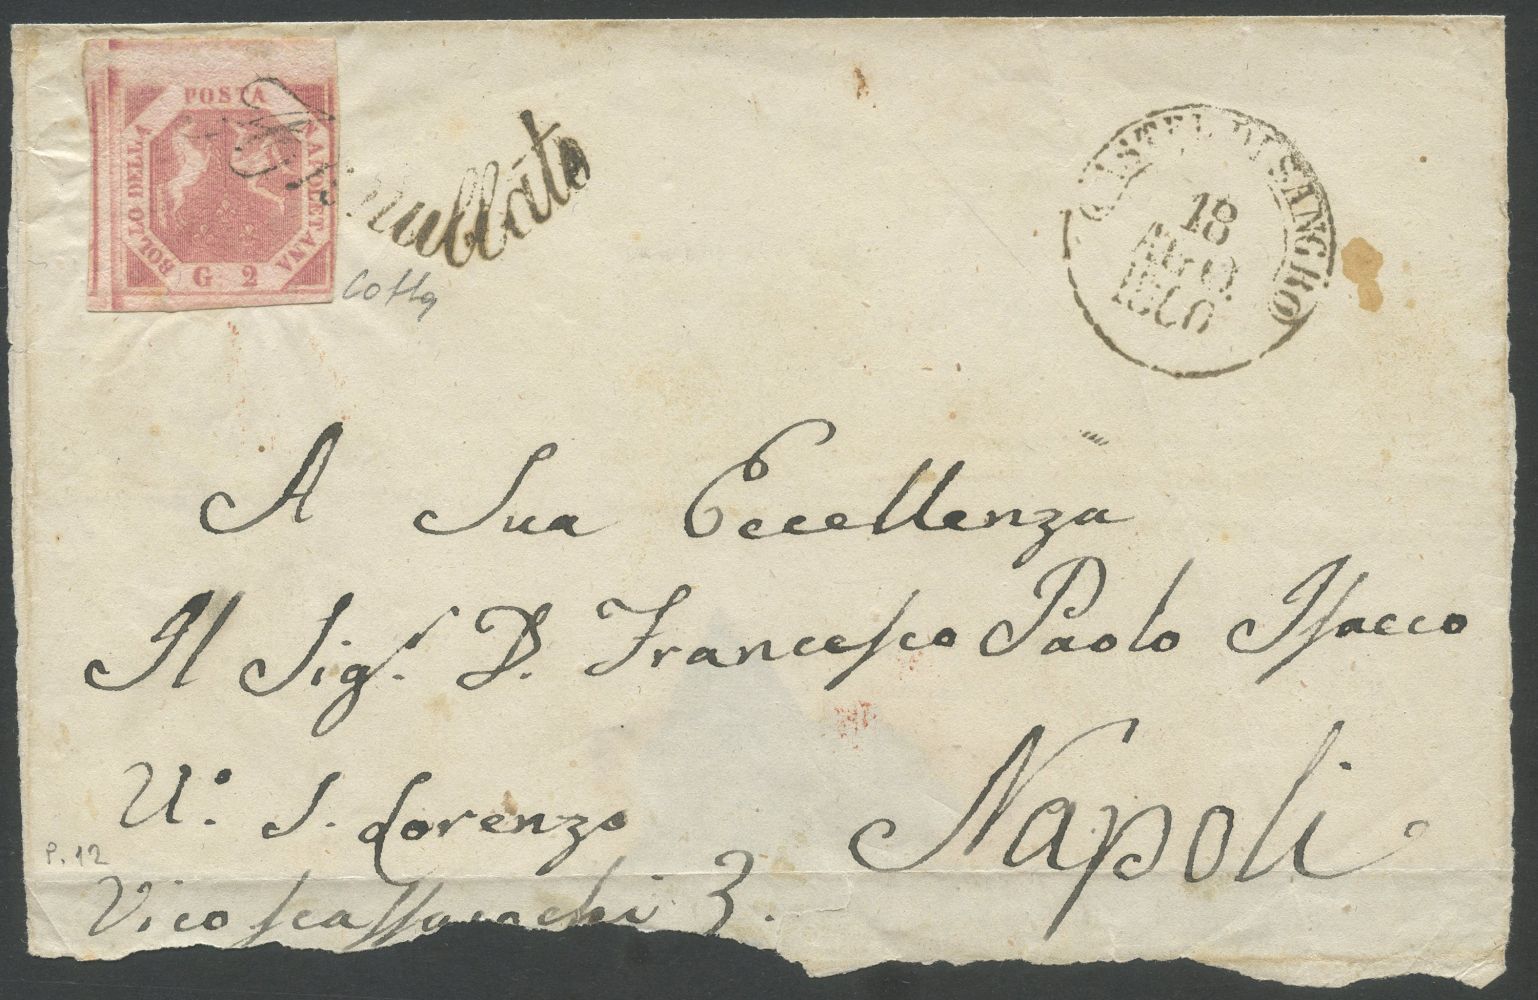 POSTA
NAPOLETANA
BOLLO DELLA
G. 2
Annullato
CASTEL DI SANGRO
18
1860
A Sua Eccellenza
Il Sigr. D. Francesco Paolo Isacco
Uo. S. Lorenzo
Napoli
P. 12
Vico 3.